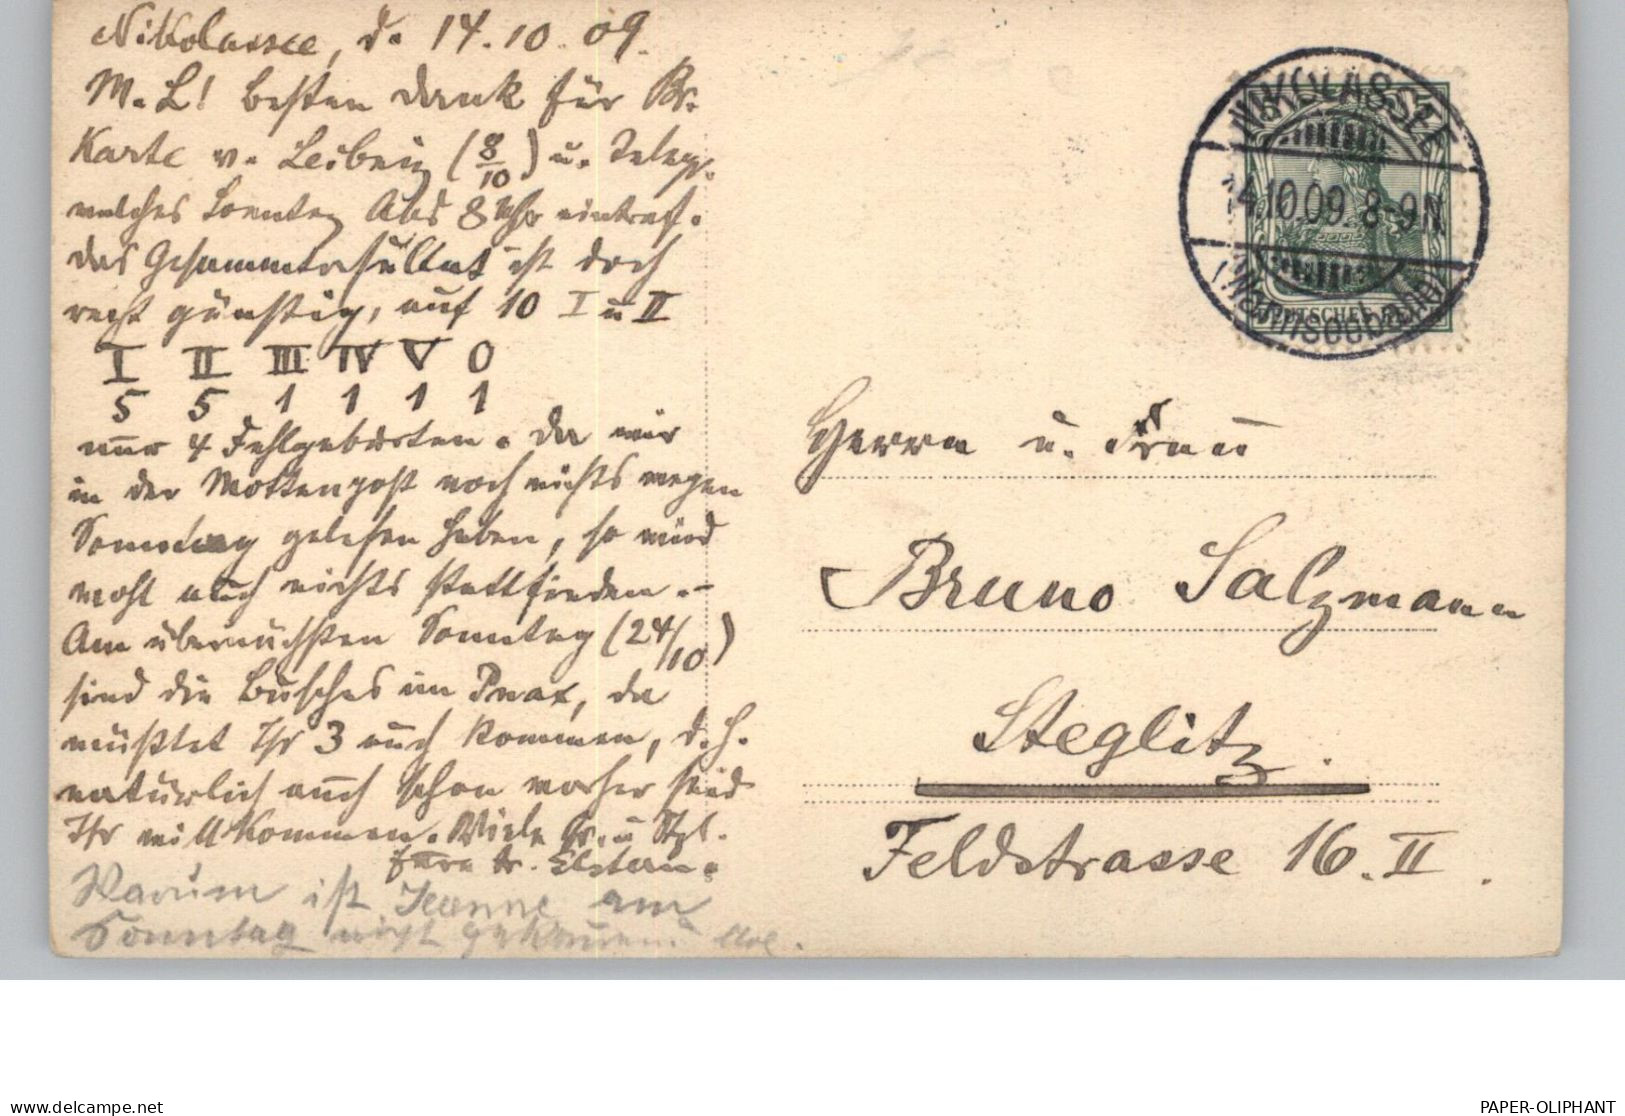 Nikolassee, d. 14.10.09.
M. L! besten Dank für Br.
Karte v. Leibniz (8/10) u. Telegr.
welches Sonntag Abd 8 Uhr eintraf.
das Gesammtresultat ist doch
recht günstig, auf 10 I u II
I II III IV V O
5 5 1 1 1 1
nur 4 Fehlgeburten. Da wir
in der Mottenpost noch nichts wegen
Sonntag gelesen haben, so wird
wohl auch nichts stattfinden.-
Am übernächsten Sonntag (24/10)
sind die Busches im da
müßtet Ihr 3 auch kommen, d. h.
natürlich auch schon vorher seid
Ihr willkommen. Viele Gr. u
Eure tr. Eltern.
Warum ist Jeanne am
Sonntag nicht gekommen?
NIKOLASSEE
14.10.09. 8-9N
(Wannseebahn)
DEUTSCHES REICH
Herrn u. Frau
Bruno Salzmann
Steglitz.
Feldstrasse 16. II.
oldthing.com
PAPER-OLIPHANT